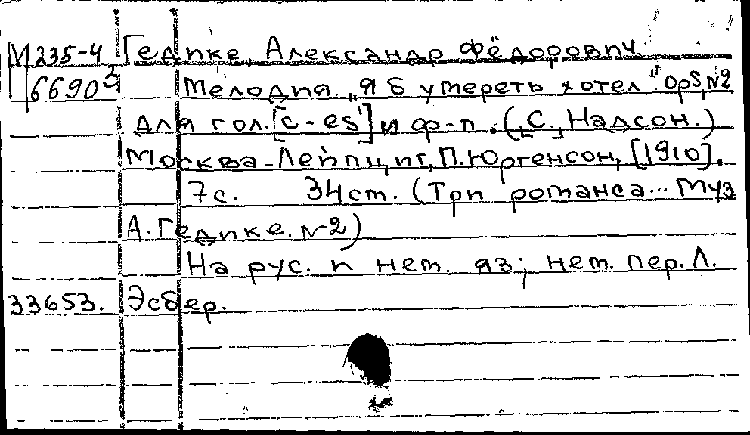 М 235-4 Гедике, Александр Фёдорович.
6690⁵ Мелодия „Я б умереть хотел" Op5, №2
для гол. [c-es¹] и ф-п. (,С., Надсон.)
Москва-Лейпциг, П. Юргенсон, [1910].
7с. 34 cm. (Три романса... Муз
А. Гедике. №2)
На рус. и нем. яз; нем. пер. Л.
33653. Эсбер.